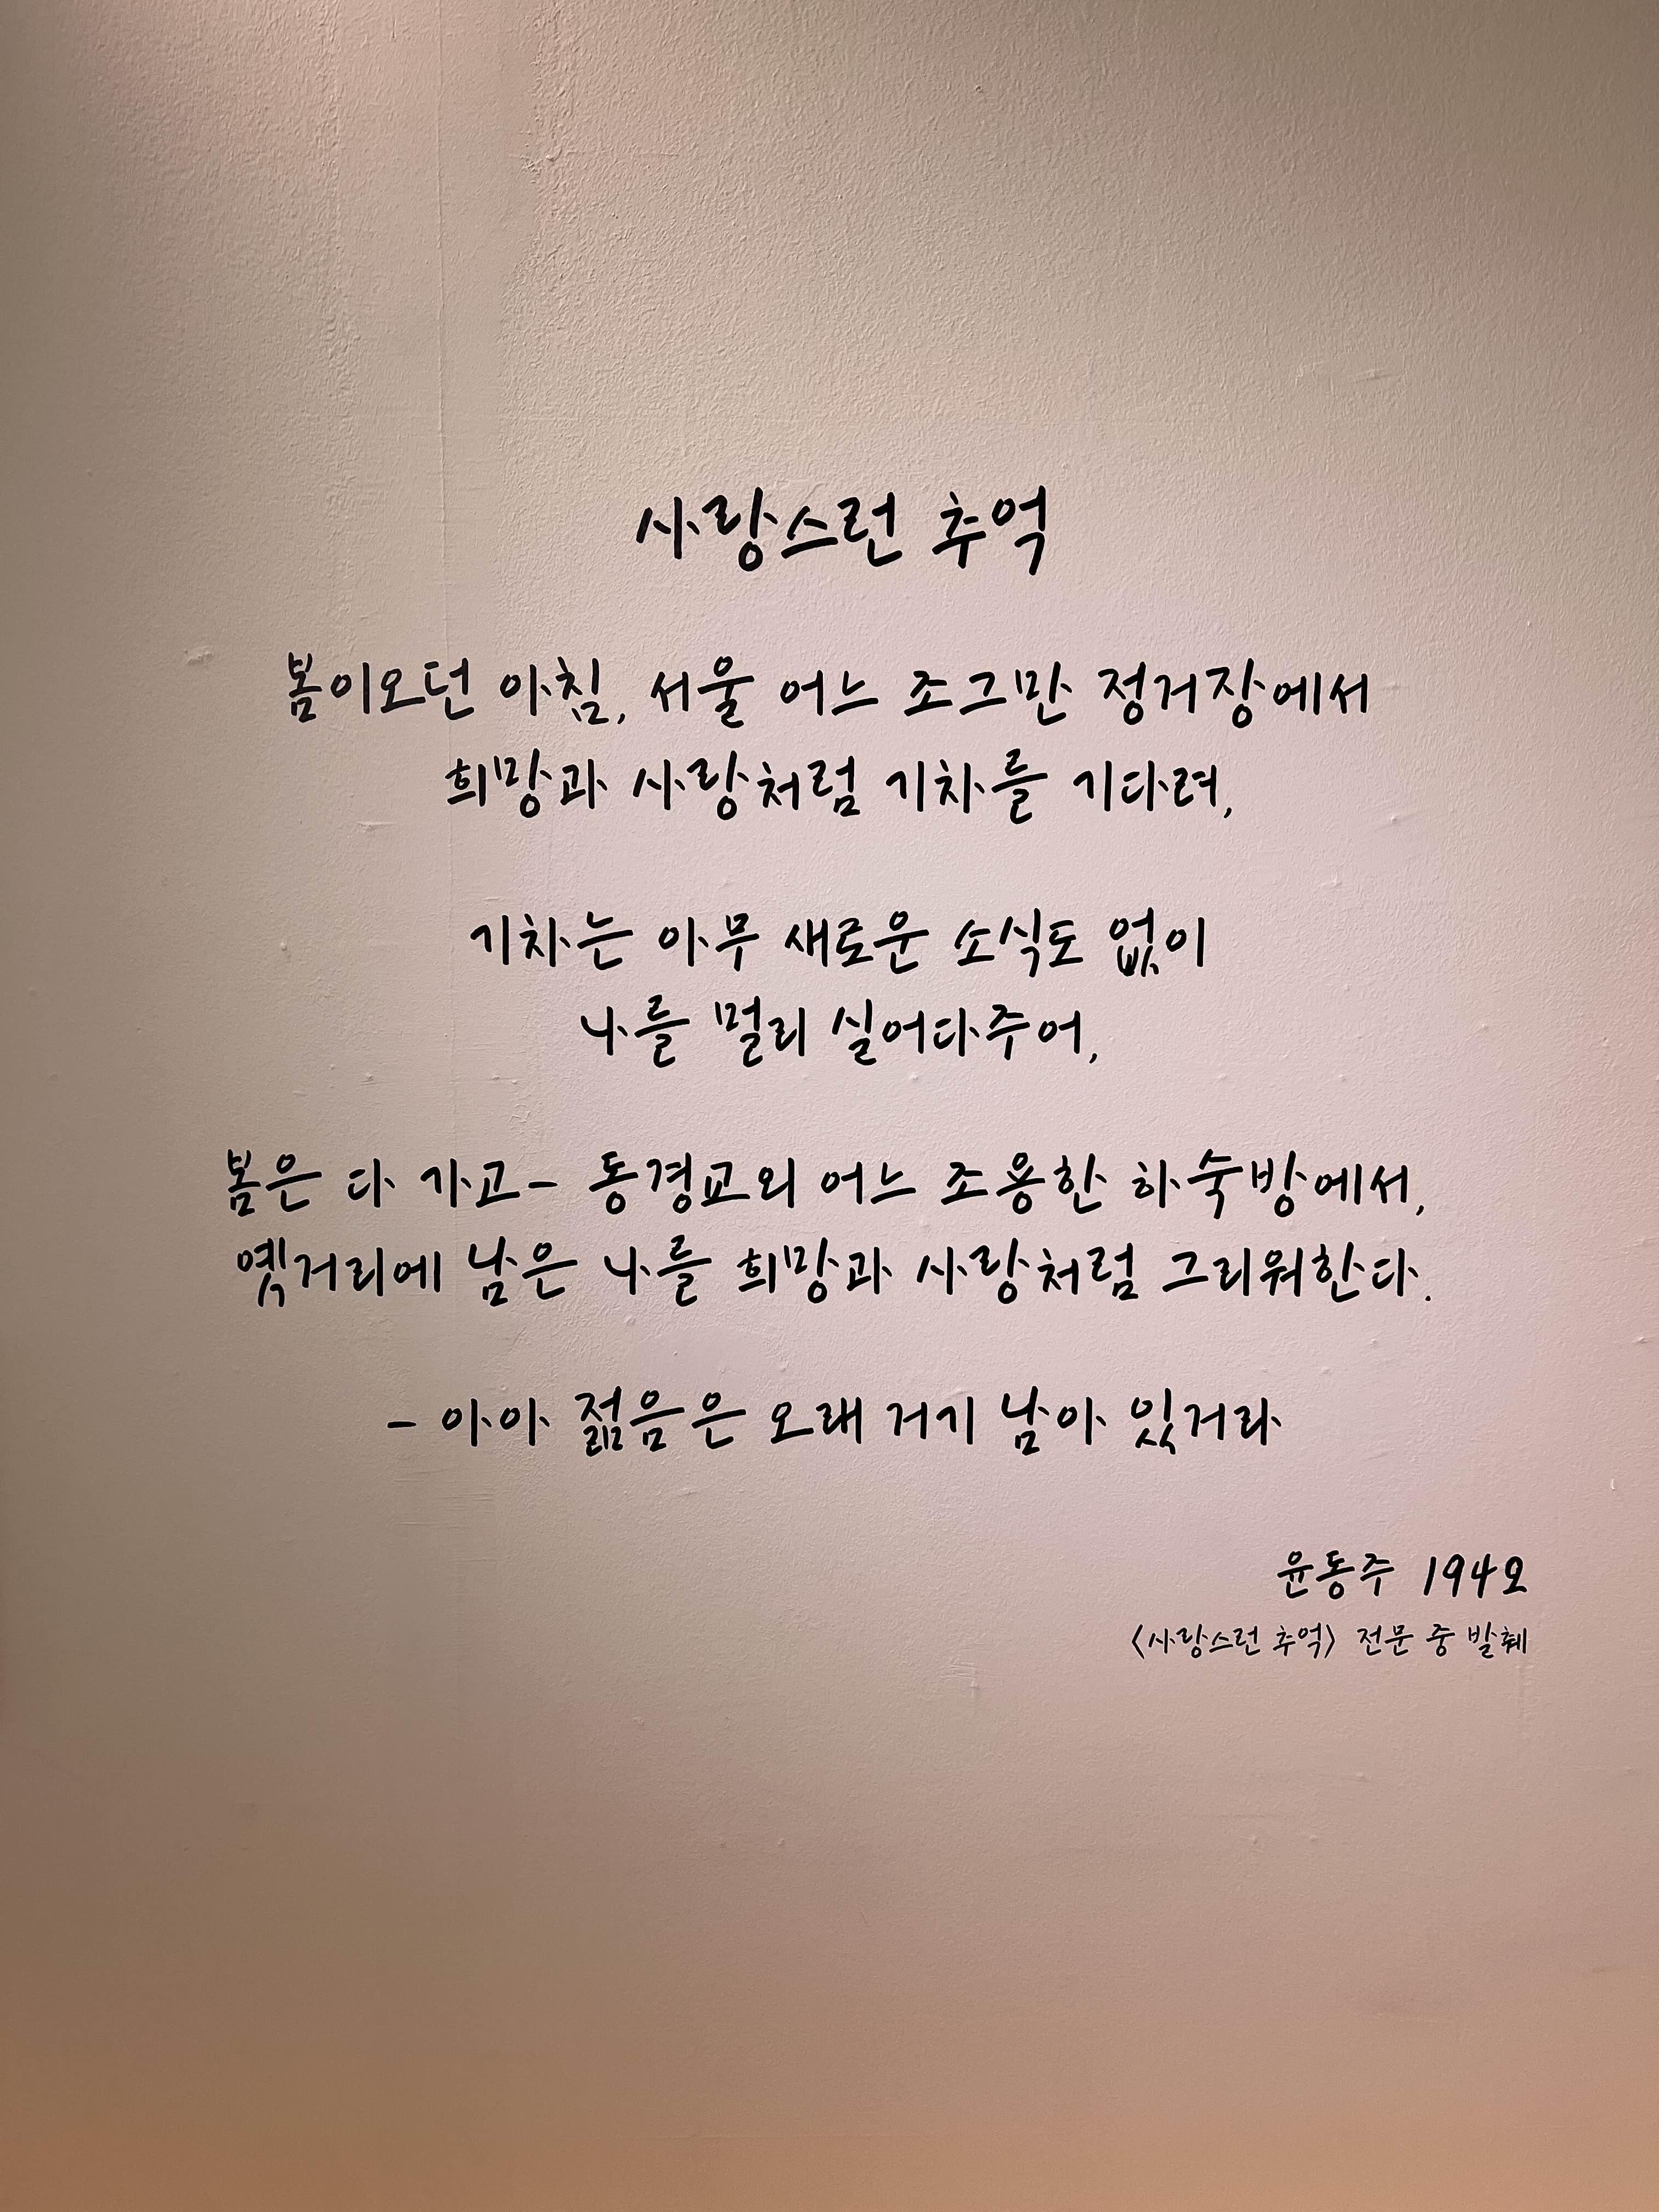 사랑스런 추억
봄이오던 아침, 서울 어느 조그만 정거장에서
희망과 사랑처럼 기차를 기다려,
기차는 아무 새로운 소식도 없이
나를 멀리 실어다주어,
봄은 다 가고- 동경교외 어느 조용한 하숙방에서,
옛거리에 남은 나를 희망과 사랑처럼 그리워한다.
- 아아 젊음은 오래 거기 남아 있거라
윤동주 1942
<사랑스런 추억> 전문 중 발췌